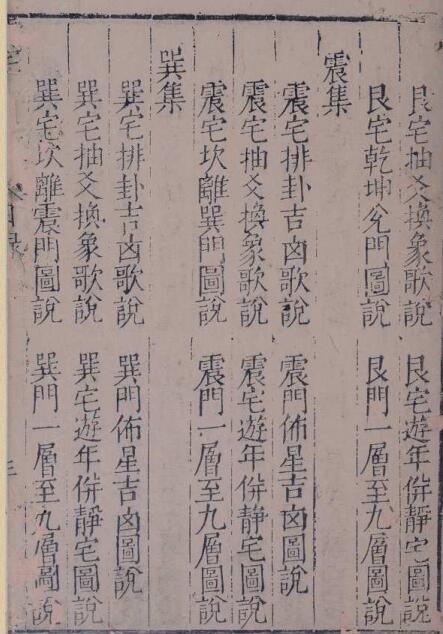 艮宅抽爻換象歌說 艮宅遊年併靜宅圖說
艮宅乾坤兌門圖說 艮門一層至九層圖說
震集
震宅排卦吉凶歌說 震門佈星吉凶圖說
震宅抽爻換象歌說 震宅遊年併静宅圖說
震宅坎離巽門圖說 震門一層至九層圖說
巽集
巽宅排卦吉凶歌說 巽門佈星吉凶圖說
巽宅抽爻換象歌說 巽宅遊年併靜宅圖說
巽宅坎離震門圖說 巽門一層至九層圖說
目錄